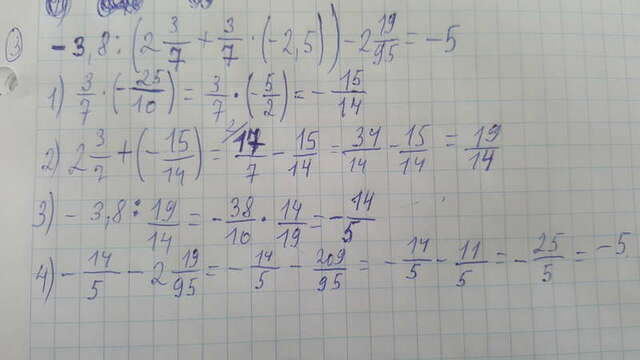 ③ -3,8 : (2 3/7 + 3/7 · (-2,5)) - 2 19/95 = -5
1) 3/7 · (-25/10) = 3/7 · (-5/2) = -15/14
2) 2 3/7 + (-15/14) = 17/7 - 15/14 = 34/14 - 15/14 = 19/14
3) -3,8 : 19/14 = -38/10 · 14/19 = -14/5
4) -14/5 - 2 19/95 = -14/5 - 209/95 = -14/5 - 11/5 = -25/5 = -5